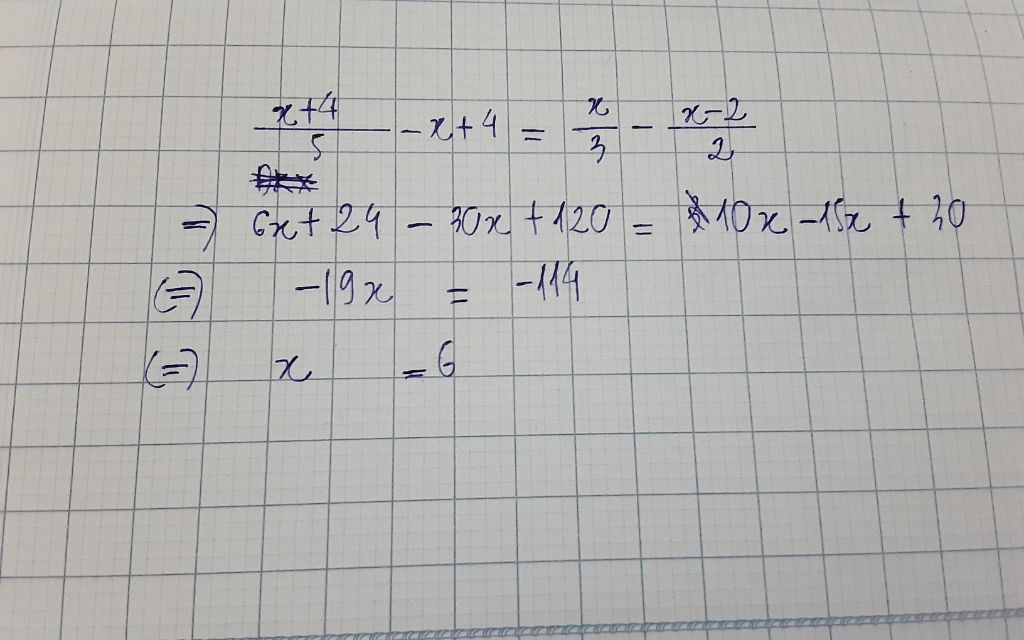 x+4/5 - x + 4 = x/3 - x-2/2
=> 6x + 24 - 30x + 120 = 10x - 15x + 30
(=) -19x = -114
(=) x = 6